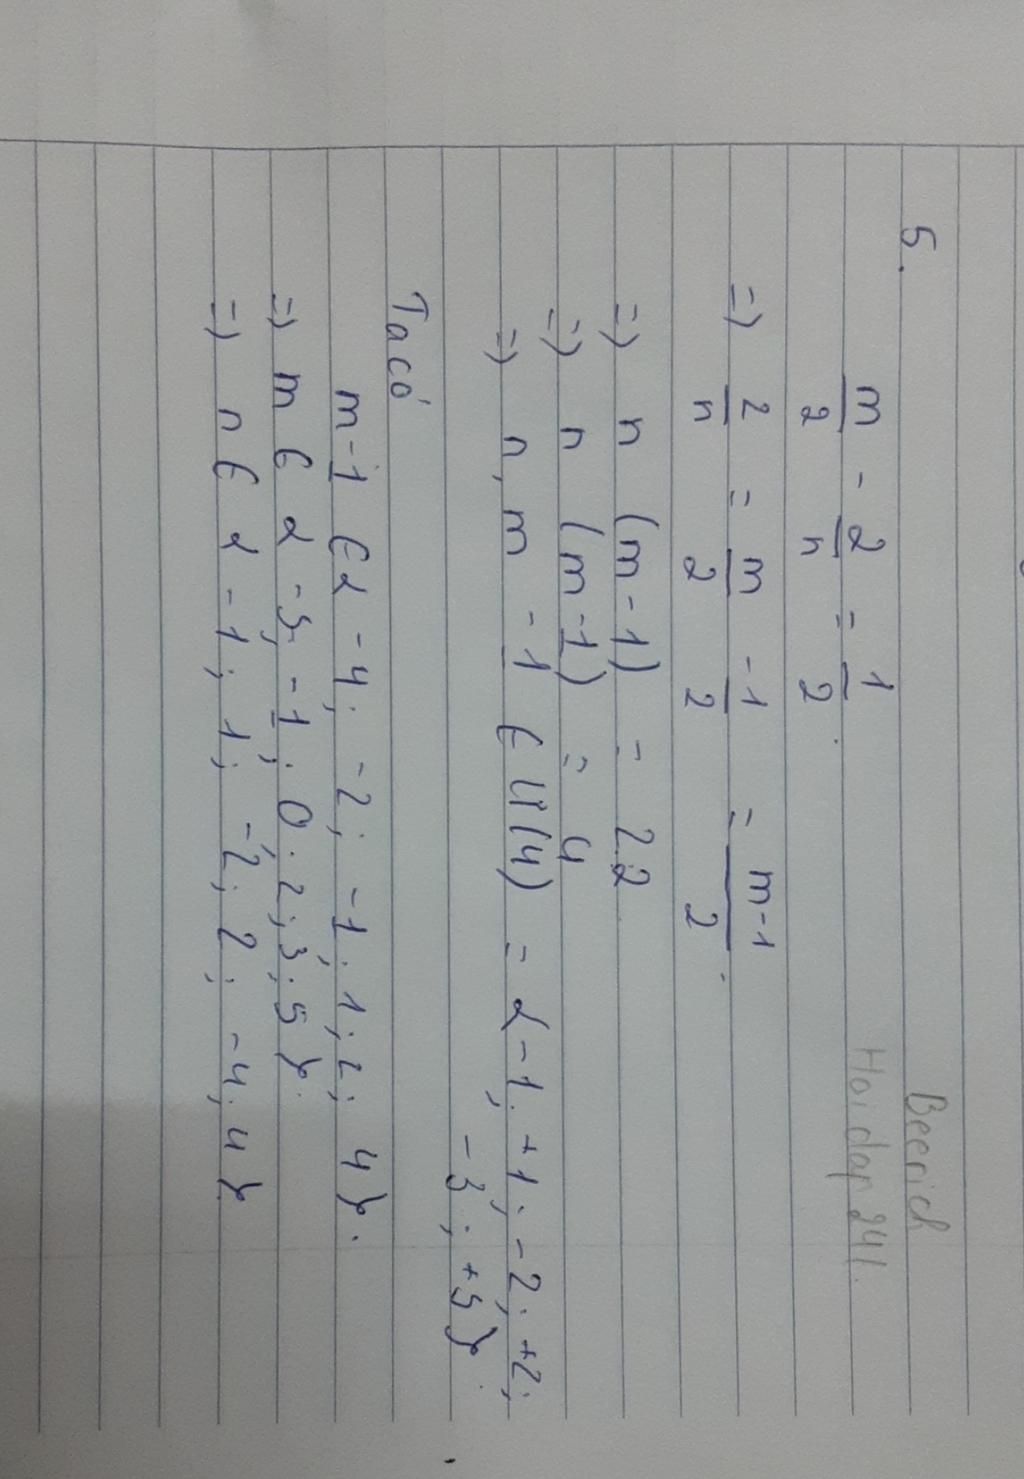 Beerich
Hoidap 241.
5.
m/2 - 2/n = 1/2.
=) 2/n = m/2 - 1/2 = m-1/2.
=) n (m-1) = 2.2
=) n (m-1) = 4
=) n, m - 1 ∈ Ư(4) = {-1; +1; -2; +2;
-3; +5}.
Ta có
m-1 ∈{ -4; -2; -1; 1; 2; 4}.
=) m ∈ { -3; -1; 0; 2; 3; 5}.
=) n ∈ { -1; 1; -2; 2; -4; 4}